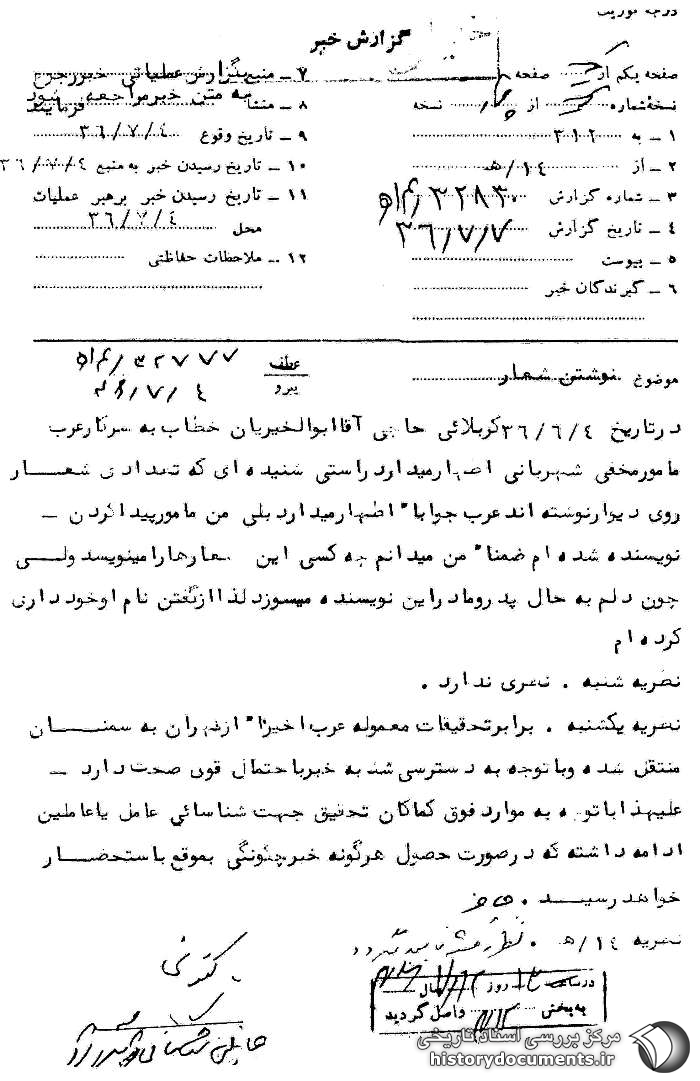 درجه فوریت
گزارش خبر
صفحه یکم از صفحه
نسخهٔ شماره از نسخه
۱ ـ به ۳۱۲
۲ ـ از ۱۴/ه
۳ ـ شماره گزارش ۳۲۸۳
۴ ـ تاریخ گزارش ۳۶/۷/۷
۵ ـ پیوست
۶ ـ گیرندگان خبر
۷ ـ منبع بگزارش عملیاتی خبر
۸ ـ منشأ به متن خبر مراجعه فرمایند
۹ ـ تاریخ وقوع ۳۶/۷/۴
۱۰ ـ تاریخ رسیدن خبر به منبع ۳۶/۷/۴
۱۱ ـ تاریخ رسیدن خبر برهبر عملیات
محل ۳۶/۷/۴
۱۲ ـ ملاحظات حفاظتی
موضوع نوشتن شعار
عطف ۳۲۷۷۷
پیرو ۳۶/۷/۴
درتاریخ ۳۶/۶/۴ کربلائی حاجی آقا ابوالخیریان خطاب به سرکارعرب
مامورمخفی شهربانی اظهارمیدارد راستی شنیده ای که تعدادی شعار
روی دیوارنوشته اند عرب جوابا" اظهارمیدارد بلی من مامورپیداکردن ـ
نویسنده شده ام ضمنا" من میدانم چه کسی این شعارهارامینویسد ولی
چون دلم به حال پدرومادراین نویسنده میسوزد لذا ازگفتن نام اوخودداری
کرده ام
نظریه شنبه . نظری ندارد .
نظریه یکشنبه . برابرتحقیقات معموله عرب اخیرا" ازتهران به سمنان
منتقل شده وباتوجه به دسترسی شنبه خبرباحتمال قوی صحت دارد ـ
علیهذا باتوجه به موارد فوق کماکان تحقیق جهت شناسائی عامل یاعاملین
ادامه داشته که درصورت حصول هرگونه خبرچگونگی بموقع باستحضار
خواهد رسید .
نظریه ۱۴/ه . نظریه یکشنبه تایید میگردد
درساعت روز سال
به بخش واصل گردید
مرکز بررسی اسناد تاریخی
historydocuments.ir